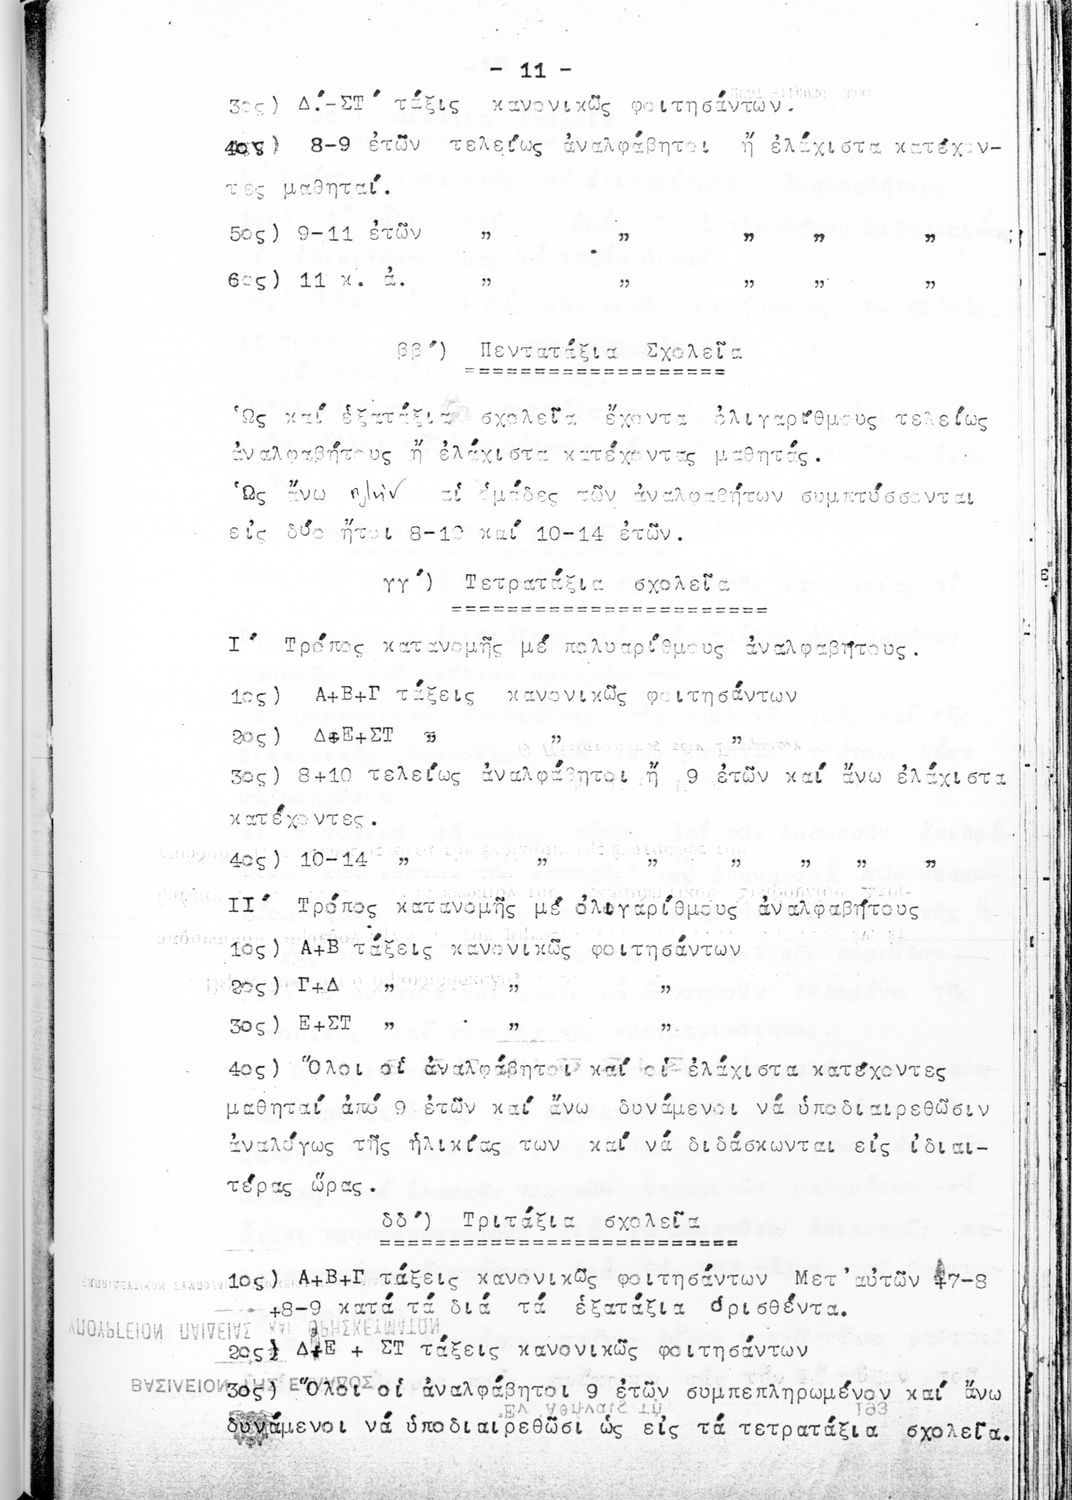 - 11 -
3ος) Δ΄-ΣΤ΄ τάξις κανονικῶς φοιτησάντων.
4ος) 8-9 ἐτῶν τελείως ἀναλφάβητοι ἤ ἐλάχιστα κατέχον-
τες μαθηταί.
5ος) 9-11 ἐτῶν " " " " "
6ος) 11 κ. ἄ. " " " " "
ββ΄) Πεντατάξια Σχολεῖα
===================
Ὡς καί ἑξατάξια σχολεῖα ἔχοντα ὀλιγαρίθμους τελείως
ἀναλφαβήτους ἤ ἐλάχιστα κατέχοντας μαθητάς.
Ὡς ἄνω πλήν αἱ ὁμάδες τῶν ἀναλφαβήτων συμπτύσσονται
εἰς δύο ἤτοι 8-10 καί 10-14 ἐτῶν.
γγ΄) Τετρατάξια σχολεῖα
=======================
Ι΄ Τρόπος κατανομῆς μέ πολυαρίθμους ἀναλφαβήτους.
1ος) Α+Β+Γ τάξεις κανονικῶς φοιτησάντων
2ος) Δ+Ε+ΣΤ " " "
3ος) 8+10 τελείως ἀναλφάβητοι ἤ 9 ἐτῶν καί ἄνω ἐλάχιστα
κατέχοντες.
4ος) 10-14 " " " " " " "
ΙΙ΄ Τρόπος κατανομῆς μέ ὀλιγαρίθμους ἀναλφαβήτους
1ος) Α+Β τάξεις κανονικῶς φοιτησάντων
2ος) Γ+Δ " " "
3ος) Ε+ΣΤ " " "
4ος) Ὅλοι οἱ ἀναλφάβητοι καί οἱ ἐλάχιστα κατέχοντες
μαθηταί ἀπό 9 ἐτῶν καί ἄνω δυνάμενοι νά ὑποδιαιρεθῶσιν
ἀναλόγως τῆς ἡλικίας των καί νά διδάσκωνται εἰς ἰδιαι-
τέρας ὥρας.
δδ΄) Τριτάξια σχολεῖα
==========================
1ος) Α+Β+Γ τάξεις κανονικῶς φοιτησάντων Μετ'αὐτῶν +7-8
+8-9 κατά τά διά τά ἑξατάξια ὁρισθέντα.
2ος) Δ+Ε + ΣΤ τάξεις κανονικῶς φοιτησάντων
3ος) Ὅλοι οἱ ἀναλφάβητοι 9 ἐτῶν συμπεπληρωμένον καί ἄνω
δυνάμενοι νά ὑποδιαιρεθῶσι ὡς εἰς τά τετρατάξια σχολεῖα.